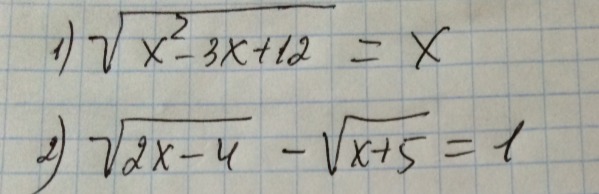 1) √(x²-3x+12) = x
2) √(2x-4) - √(x+5) = 1